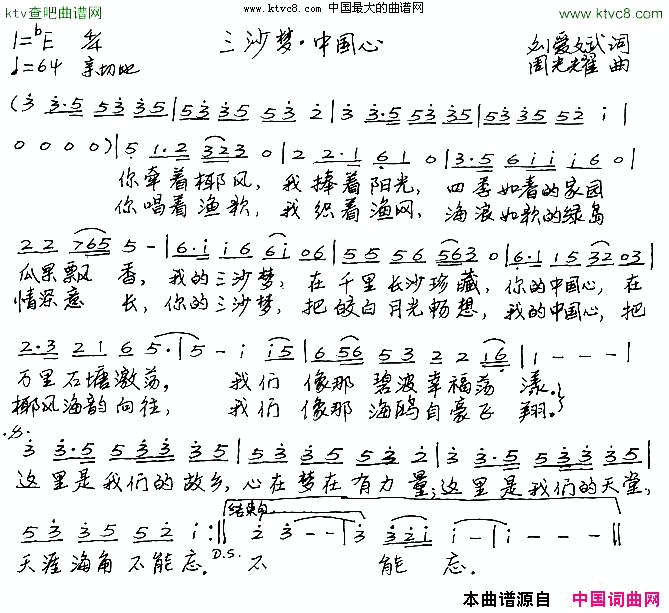 ktv查吧曲谱网
www.ktvc8.com 中国最大的曲谱网
www.ktvc8.com
1=bE 4/4 三沙梦·中国心 刘爱斌词
♩=64 亲切地 周光耀 曲
(3 3·5 53 35|53 35 53 2|3 3·5 53 35|53 35 52 i|
0 0 0 0)|5 1·2 323 0|2 2·1 61 0|3·5 6i i i6 0|
你牵着椰风，我捧着阳光，四季如春的家园
你唱着渔歌，我织着渔网，海浪如歌的绿岛
22 765 5 -|6·i i6 6i 06|55 56 563 0|6·1 15 32 03|
瓜果飘香，我的三沙梦，在千里长沙珍藏，你的中国心，在
情深意长，你的三沙梦，把皎白月光畅想，我的中国心，把
2·3 21 6 5·|5 - i i5|6 56 53 2 2 16|1 - - -|
万里石塘激荡，我们像那碧波幸福荡漾。
椰风海韵向往，我们像那海鸥自豪飞翔。
3 3·5 53 3 35|53 35 53 2|3 3·5 53 3 35|
这里是我们的故乡，心在梦在有力量；这里是我们的天堂，
结束句
53 35 52 i :|| 2 3 - -|3 32i i -|i - - -||
天涯海角不能忘。D.S. 不能忘。
本曲谱源自 中国词曲网